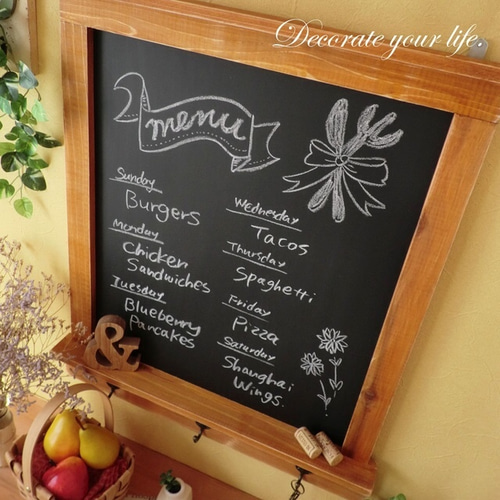 Decorate your life.
menu
Sunday
Burgers
Monday
Chicken
Sandwiches
Tuesday
Blueberry
Pancakes
Wednesday
Tacos
Thursday
Spaghetti
Friday
Pizza
Saturday
Shanghai
Wings.
&